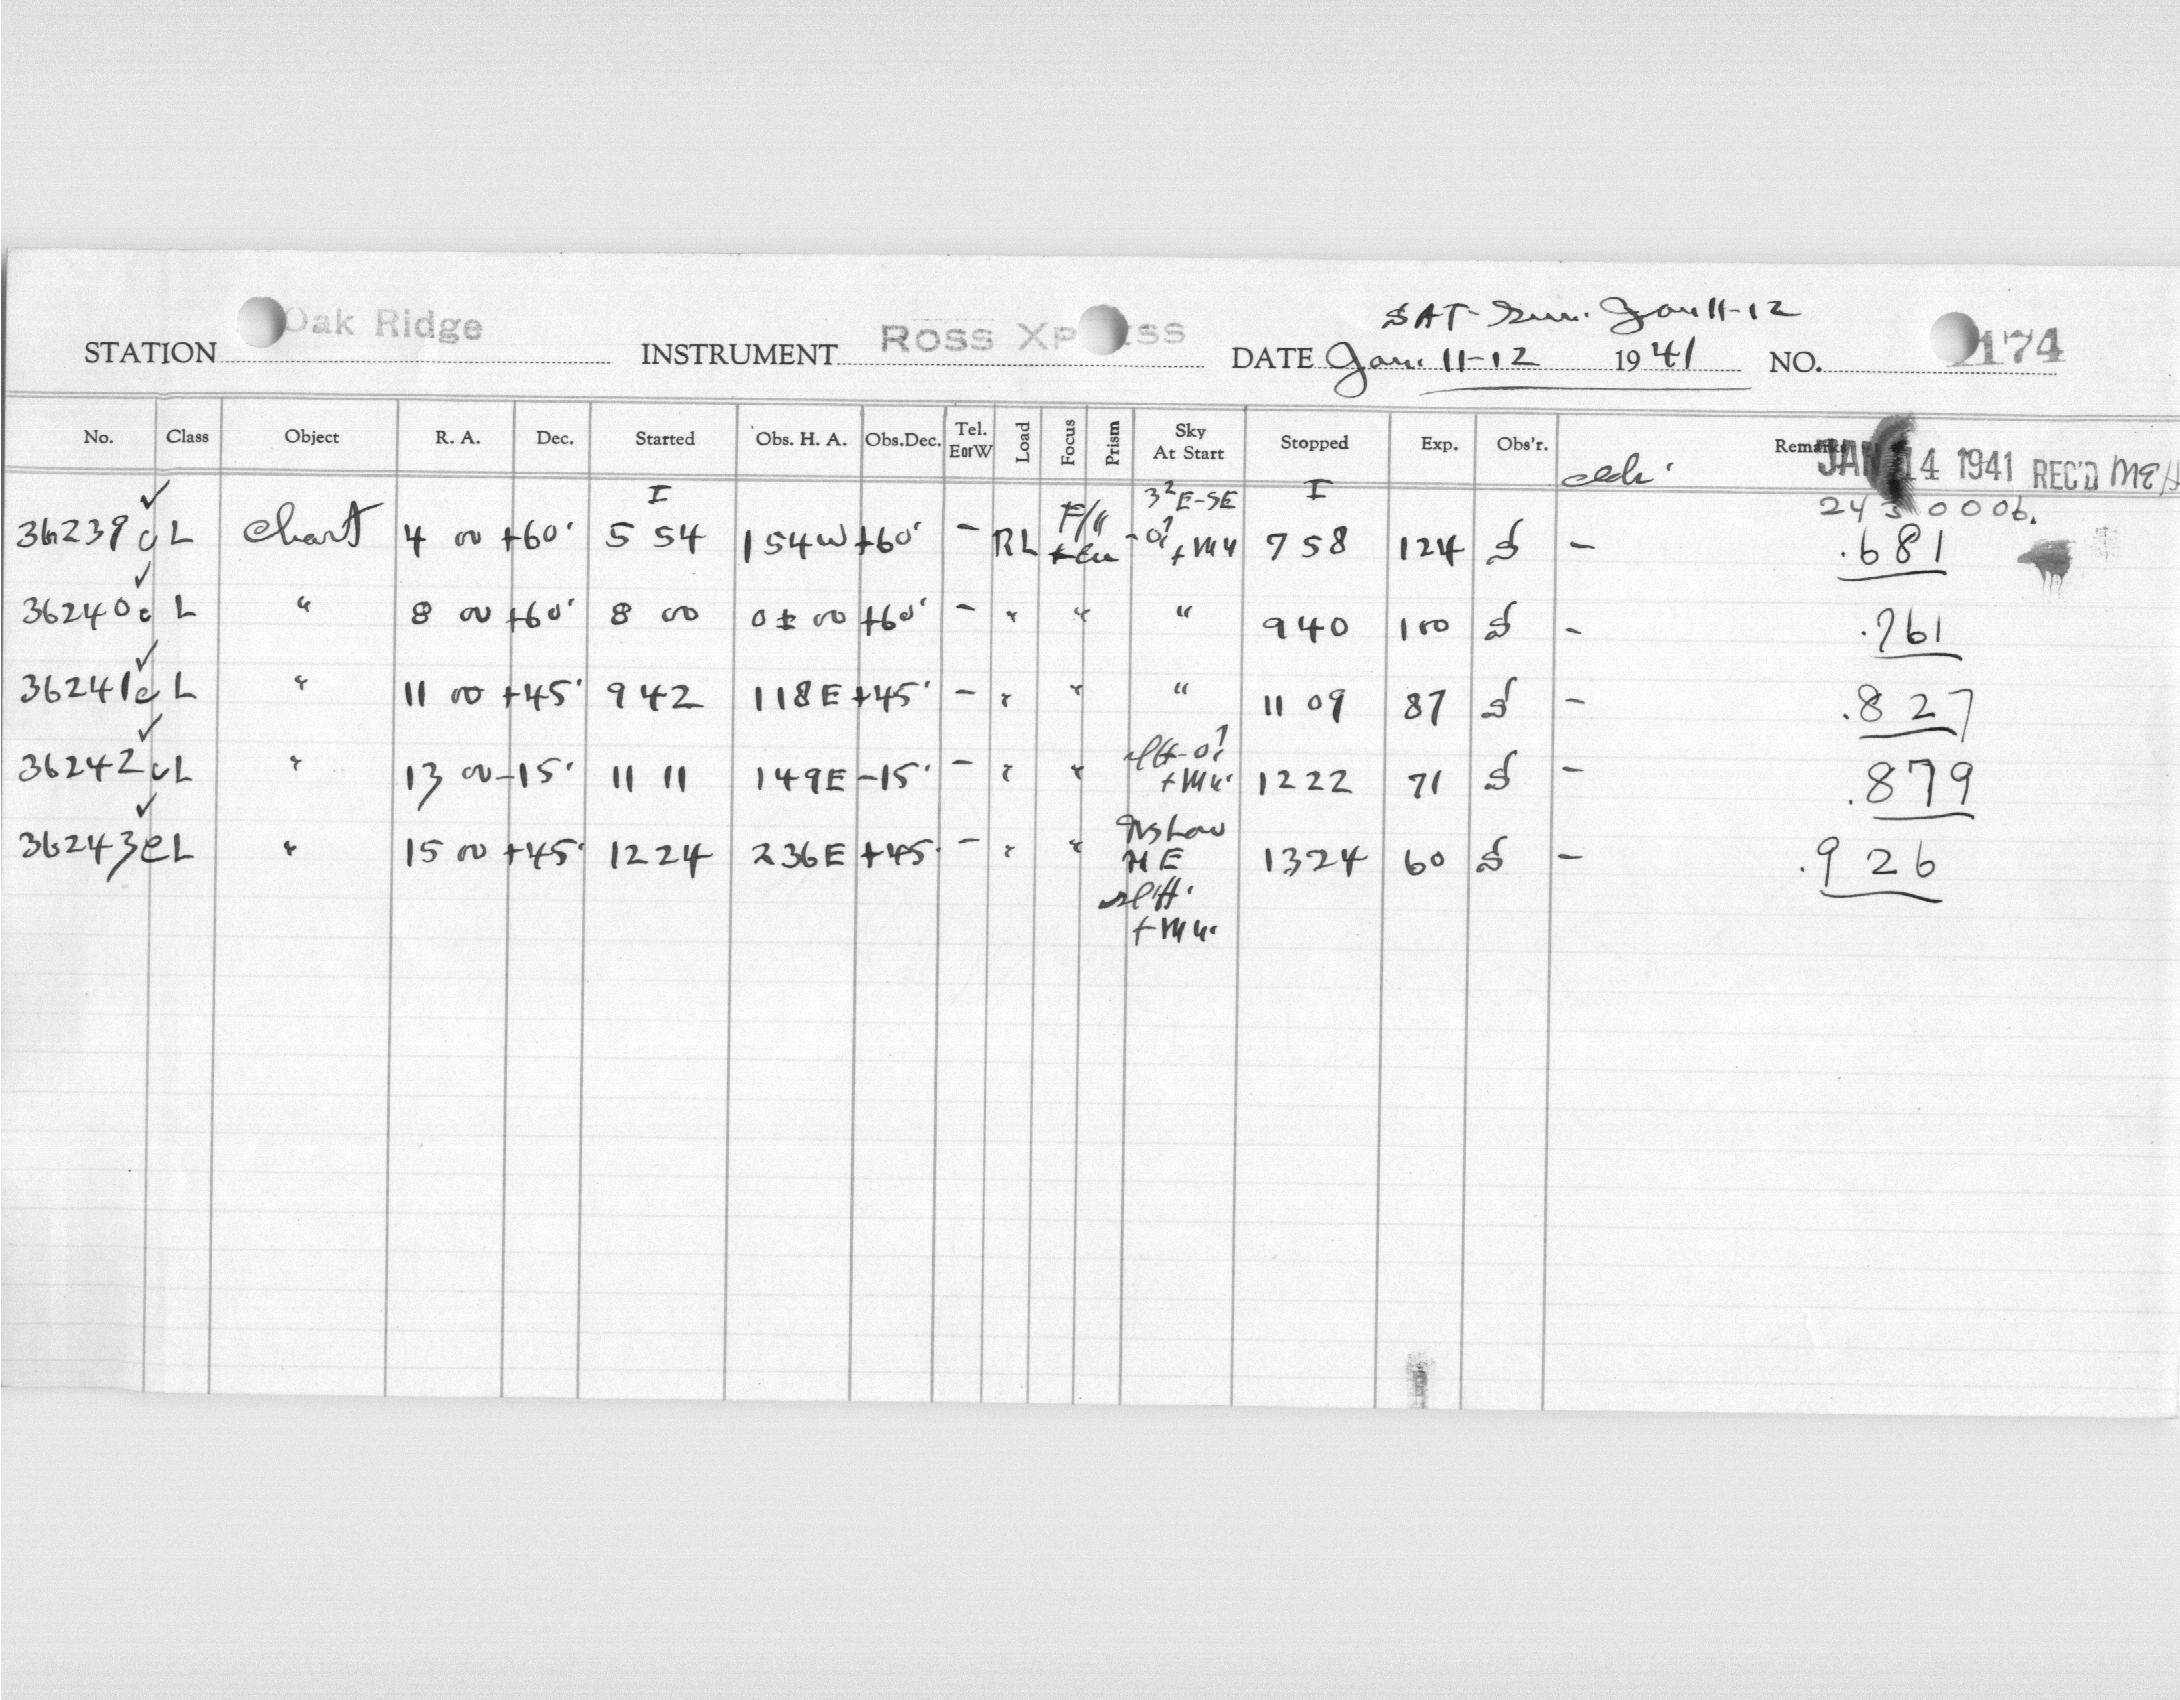 SAT- Sun. Jan 11-12
STATION Oak Ridge INSTRUMENT ROSS XP ESS DATE Jan. 11-12 1941 NO. 174
No. Class Object R. A. Dec. Started Obs. H. A. Obs.Dec. Tel. EorW Load Focus Prism Sky At Start Stopped Exp. Obs'r. Remarks
JAN 14 1941 REC'D
I 3² E-SE I 243 0006.
36239 c L Chart 4 00 +60° 5 54 1 54 W +60° - RL F/" +Mu 7 58 124 S - .681
36240 c L " 8 00 +60° 8 00 0 ± 00 +60° - " " " 9 40 100 S - .761
36241 c L " 11 00 +45° 9 42 1 18 E +45° - " " " 11 09 87 S - .827
36242 c L " 13 00 -15° 11 11 1 49 E -15° - " " +Mu. 12 22 71 S - .879
36243 c L " 15 00 +45° 12 24 2 36 E +45° - " " Low NE 13 24 60 S - .926
+Mu.